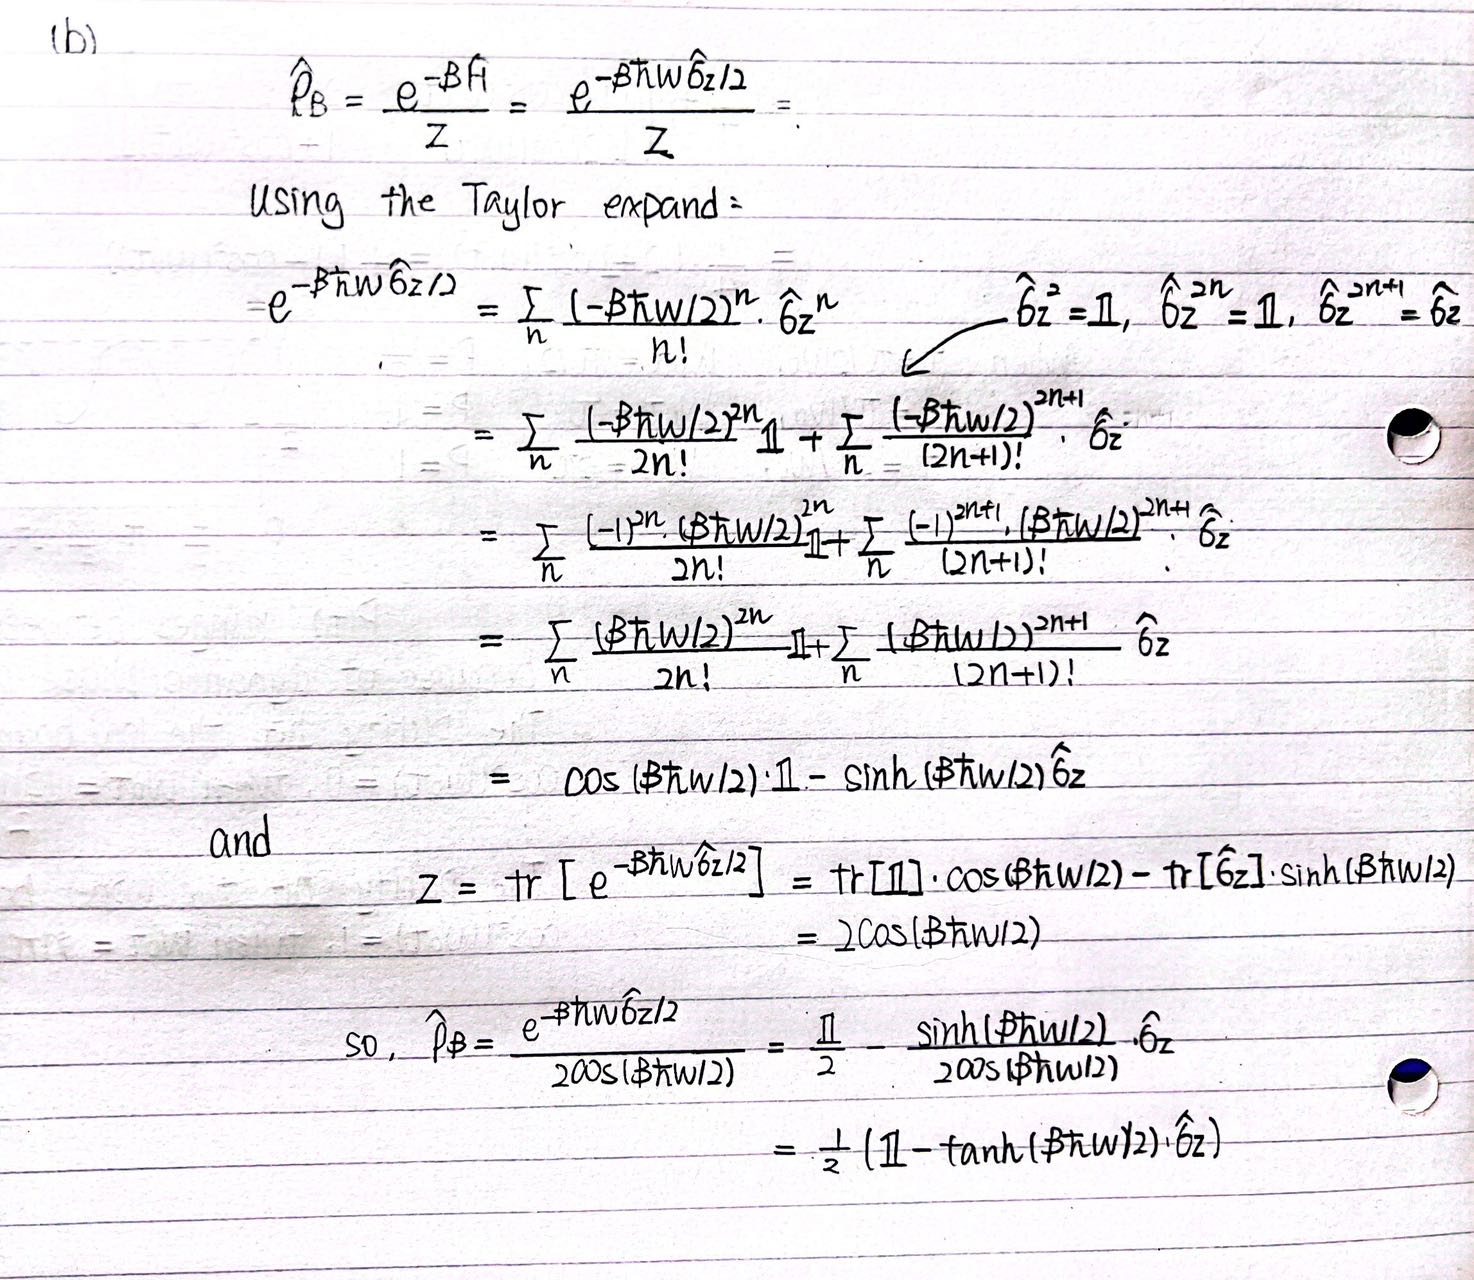 (b)
ρ̂_B = e^{-βĤ}/Z = e^{-βħwσ̂z/2}/Z =
Using the Taylor expand:
= e^{-βħwσ̂z/2} = Σ_n (-βħw/2)^n/n! · σ̂z^n    σ̂z^2 = 𝟙, σ̂z^{2n} = 𝟙, σ̂z^{2n+1} = σ̂z
= Σ_n (-βħw/2)^{2n}/2n! 𝟙 + Σ_n (-βħw/2)^{2n+1}/(2n+1)! · σ̂z
= Σ_n (-1)^{2n}·(βħw/2)^{2n}/2n! 𝟙 + Σ_n (-1)^{2n+1}·(βħw/2)^{2n+1}/(2n+1)! · σ̂z
= Σ_n (βħw/2)^{2n}/2n! 𝟙 + Σ_n (βħw/2)^{2n+1}/(2n+1)! σ̂z
= cos(βħw/2)·𝟙 - sinh(βħw/2)σ̂z
and
Z = tr[e^{-βħwσ̂z/2}] = tr[𝟙]·cos(βħw/2) - tr[σ̂z]·sinh(βħw/2)
= 2cos(βħw/2)
so, ρ̂_B = e^{-βħwσ̂z/2}/2cos(βħw/2) = 𝟙/2 - sinh(βħw/2)/2cos(βħw/2) ·σ̂z
= 1/2 (𝟙 - tanh(βħw/2)·σ̂z)